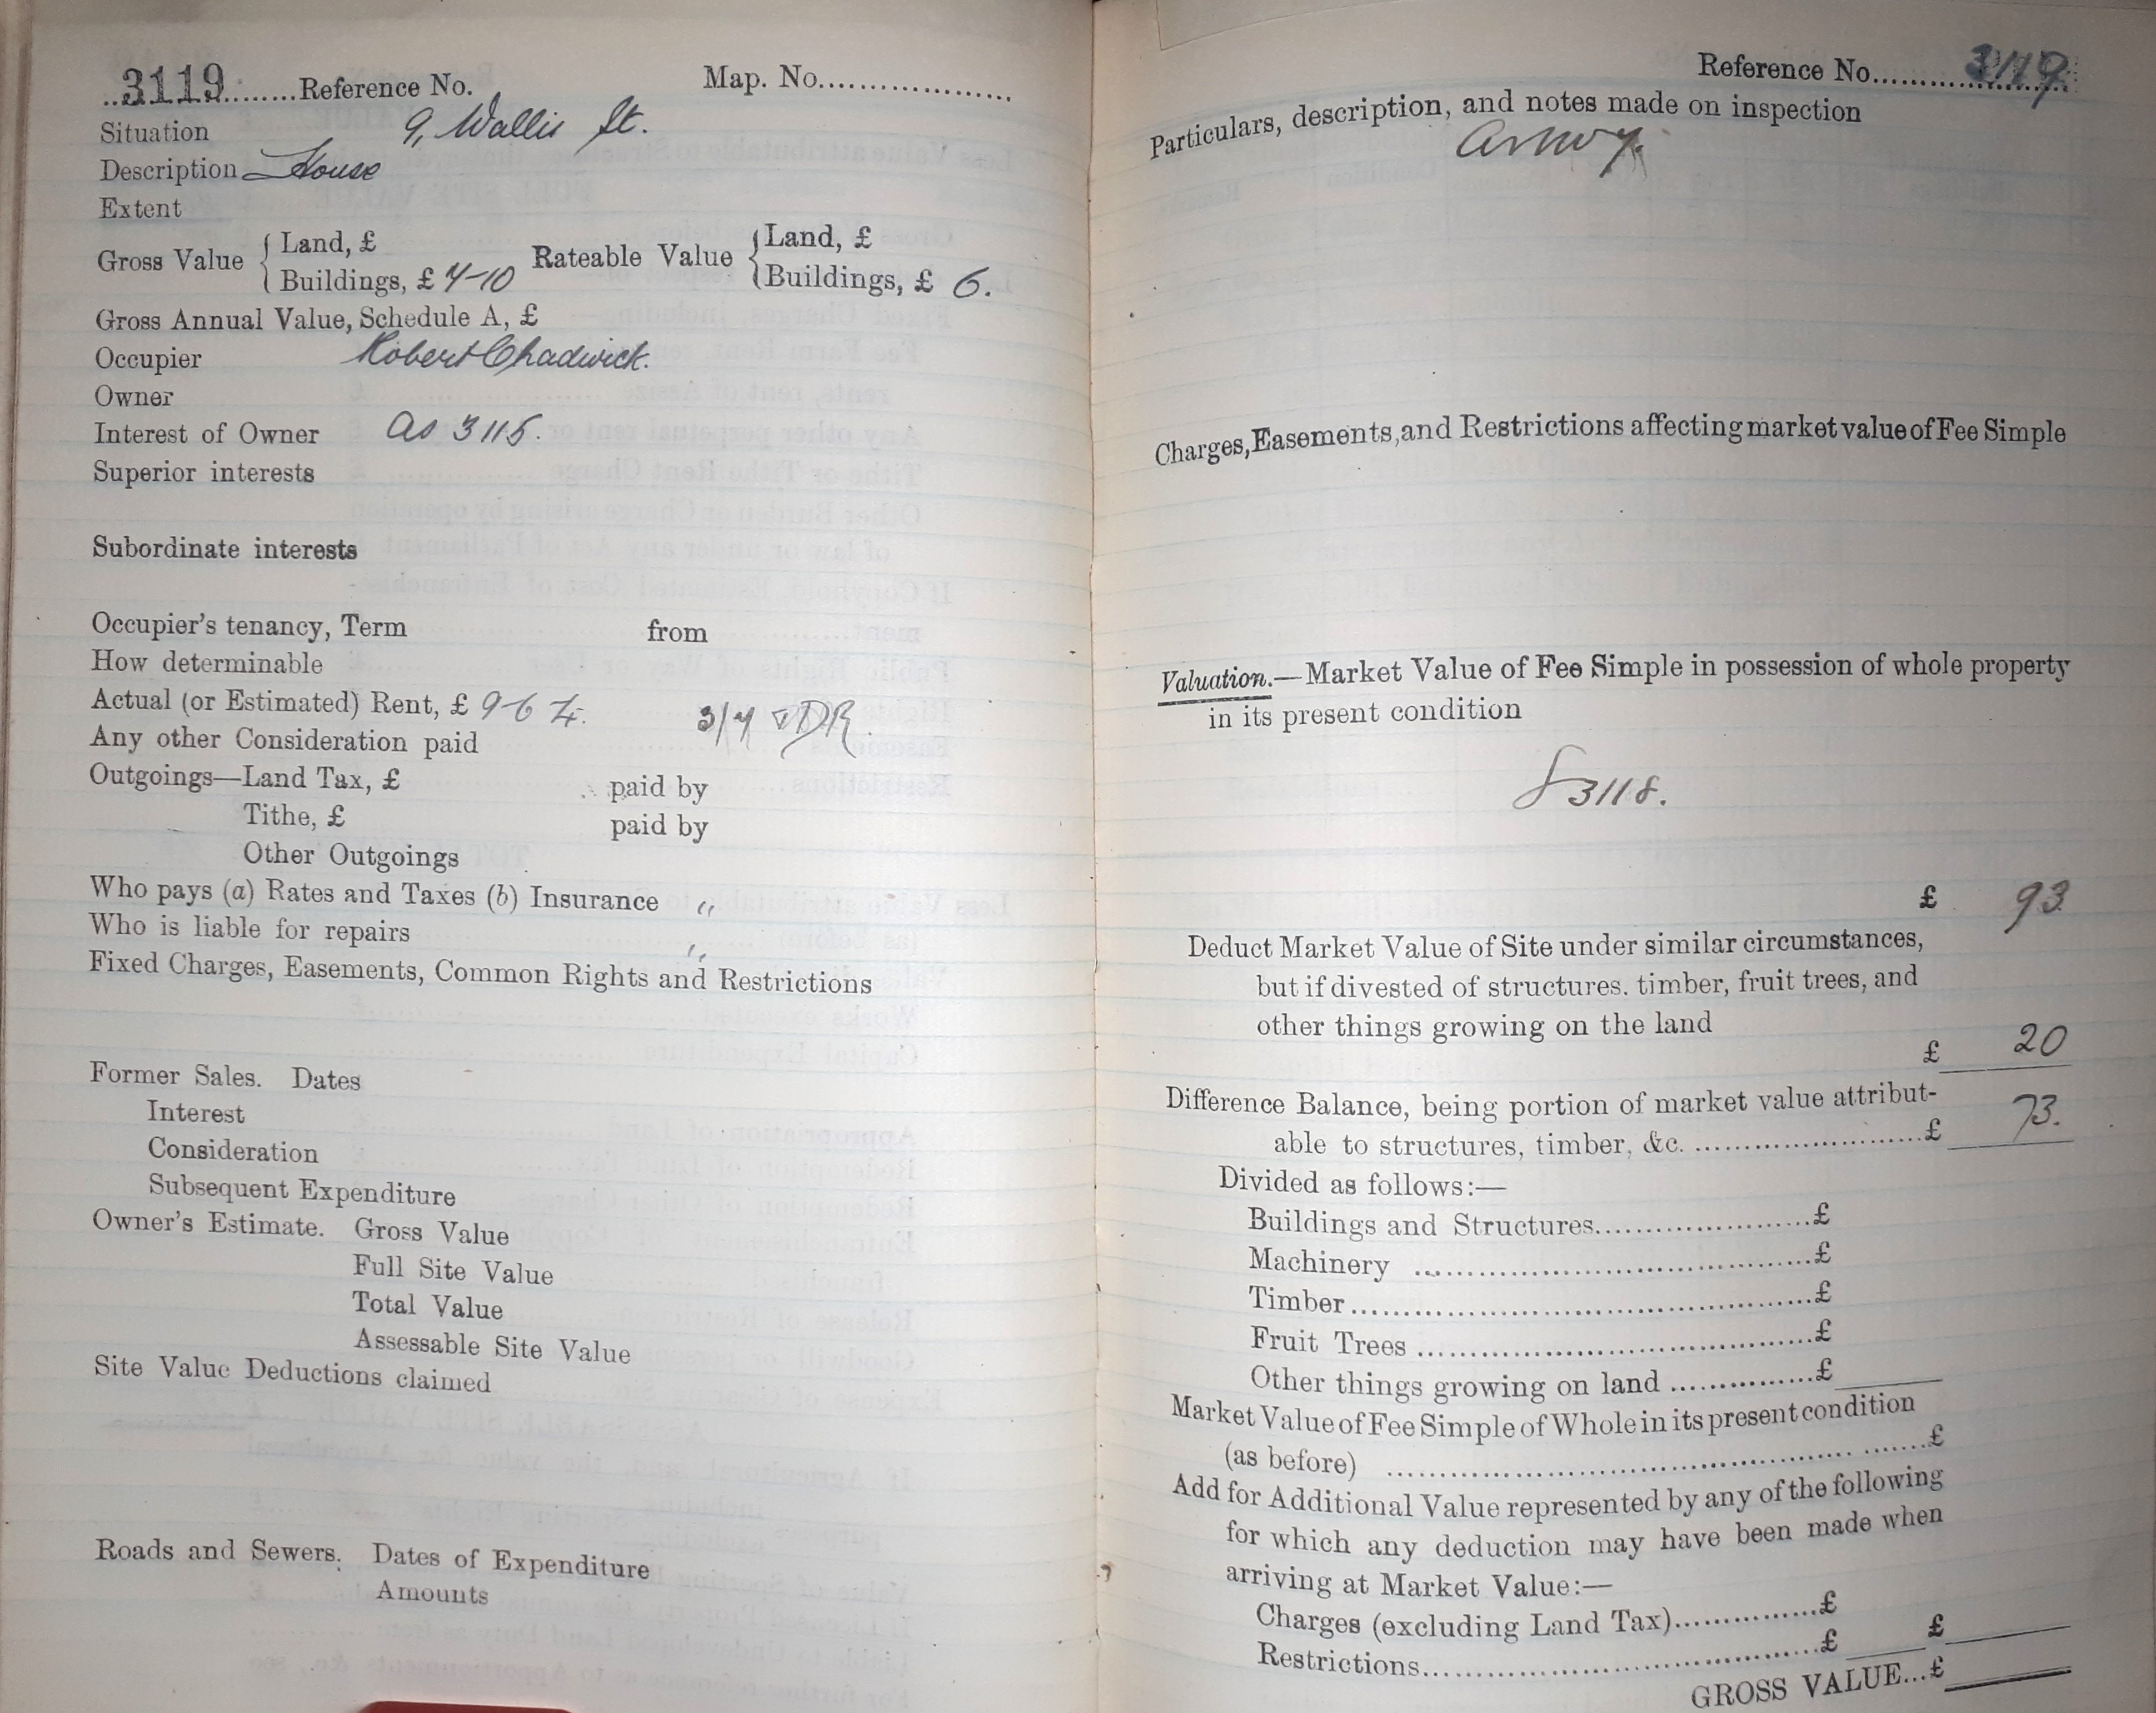 3119 ........ Reference No. Map. No....................
Situation 9, Wallis St.
Description House
Extent
Gross Value { Land, £ Rateable Value { Land, £
Buildings, £ 7-10 Buildings, £ 6.
Gross Annual Value, Schedule A, £
Occupier Robert Chadwick.
Owner
Interest of Owner as 3115.
Superior interests
Subordinate interests
Occupier's tenancy, Term from
How determinable
Actual (or Estimated) Rent, £ 9-6
Any other Consideration paid
Outgoings—Land Tax, £ paid by
Tithe, £ paid by
Other Outgoings
Who pays (a) Rates and Taxes (b) Insurance "
Who is liable for repairs "
Fixed Charges, Easements, Common Rights and Restrictions
Former Sales. Dates
Interest
Consideration
Subsequent Expenditure
Owner's Estimate. Gross Value
Full Site Value
Total Value
Assessable Site Value
Site Value Deductions claimed
Roads and Sewers. Dates of Expenditure
Amounts
Reference No.......... 3119
Particulars, description, and notes made on inspection
Charges, Easements, and Restrictions affecting market value of Fee Simple
Valuation.—Market Value of Fee Simple in possession of whole property
in its present condition
3118.
£ 93
Deduct Market Value of Site under similar circumstances,
but if divested of structures. timber, fruit trees, and
other things growing on the land
£ 20
Difference Balance, being portion of market value attribut-
able to structures, timber, &c. ........................£ 73.
Divided as follows:—
Buildings and Structures......................£
Machinery ........................................£
Timber..............................................£
Fruit Trees ........................................£
Other things growing on land ...............£
Market Value of Fee Simple of Whole in its present condition
(as before) ..................................................£
Add for Additional Value represented by any of the following
for which any deduction may have been made when
arriving at Market Value:—
Charges (excluding Land Tax)...............£
Restrictions........................................£ £
GROSS VALUE...£